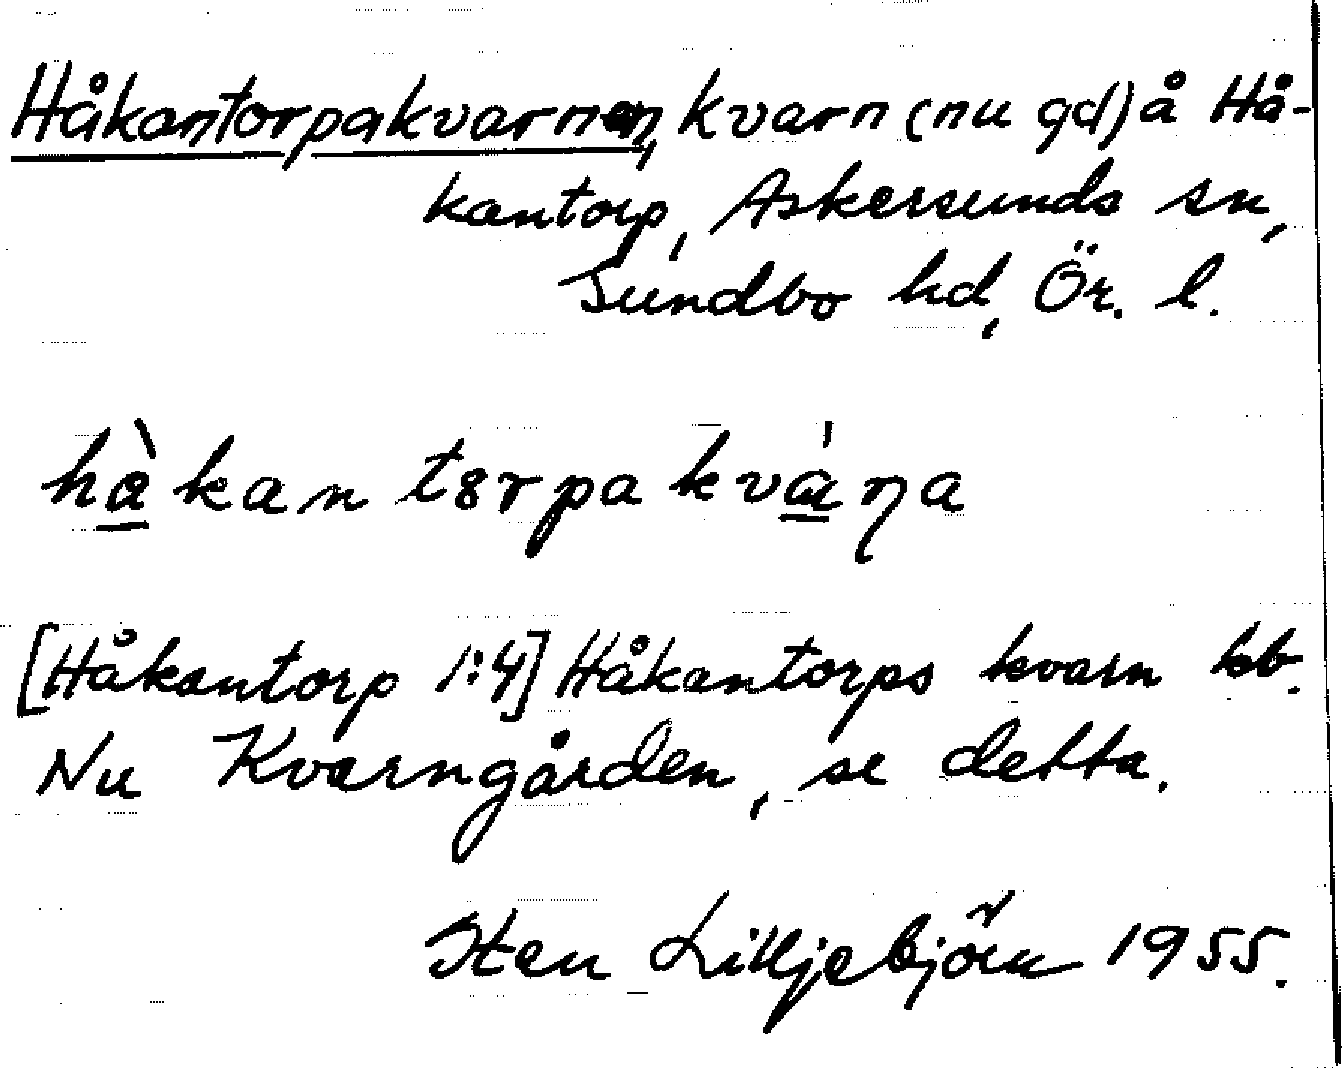 Håkantorpakvarnen, kvarn (nu gd) å Hå-
kantorp, Askersunds sn,
Sundbo hd, Ör. l.
hå̀kantɤrpakváɳa
[Håkantorp 1:4] Håkantorps kvarn kb.
Nu Kvarngården, se detta.
Sten Lilljebjörn 1955.